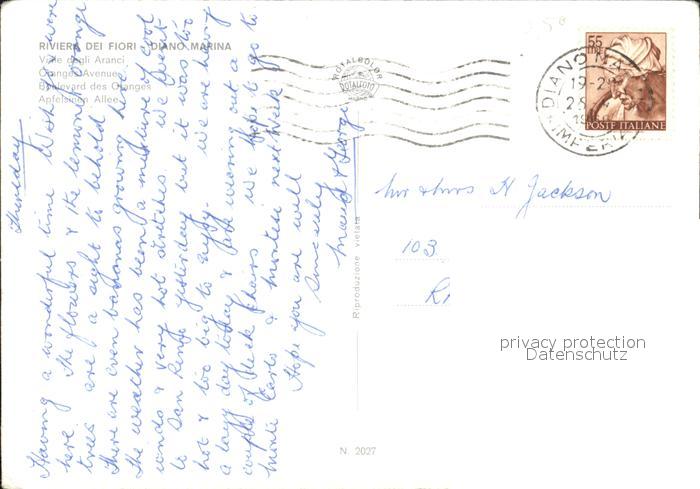 RIVIERA DEI FIORI - DIANO MARINA
Viale degli Aranci
Oranges Avenue
Boulevard des Oranges
Apfelsinen Allee
Thursday
Having a wonderful time. Wish you were
here. The flowers & the lemon & orange
trees are a sight to behold
There are even bananas growing here.
The weather has been a mixture of cool
winds & very hot stretches. We went
to San Remo yesterday but it was too
hot & too big to enjoy. We are having
a lazy day today & just wearing out a
couple of deck chairs. We hope to go to
Monte Carlo & next week
Hope you are well
Sincerely
Maud & George
ROTALCOLOR
ROTALFOTO
Riproduzione vietata
N. 2027
55
POSTE ITALIANE
DIANO MA
19-2
IMPERI
Mr & Mrs H Jackson
103
privacy protection
Datenschutz